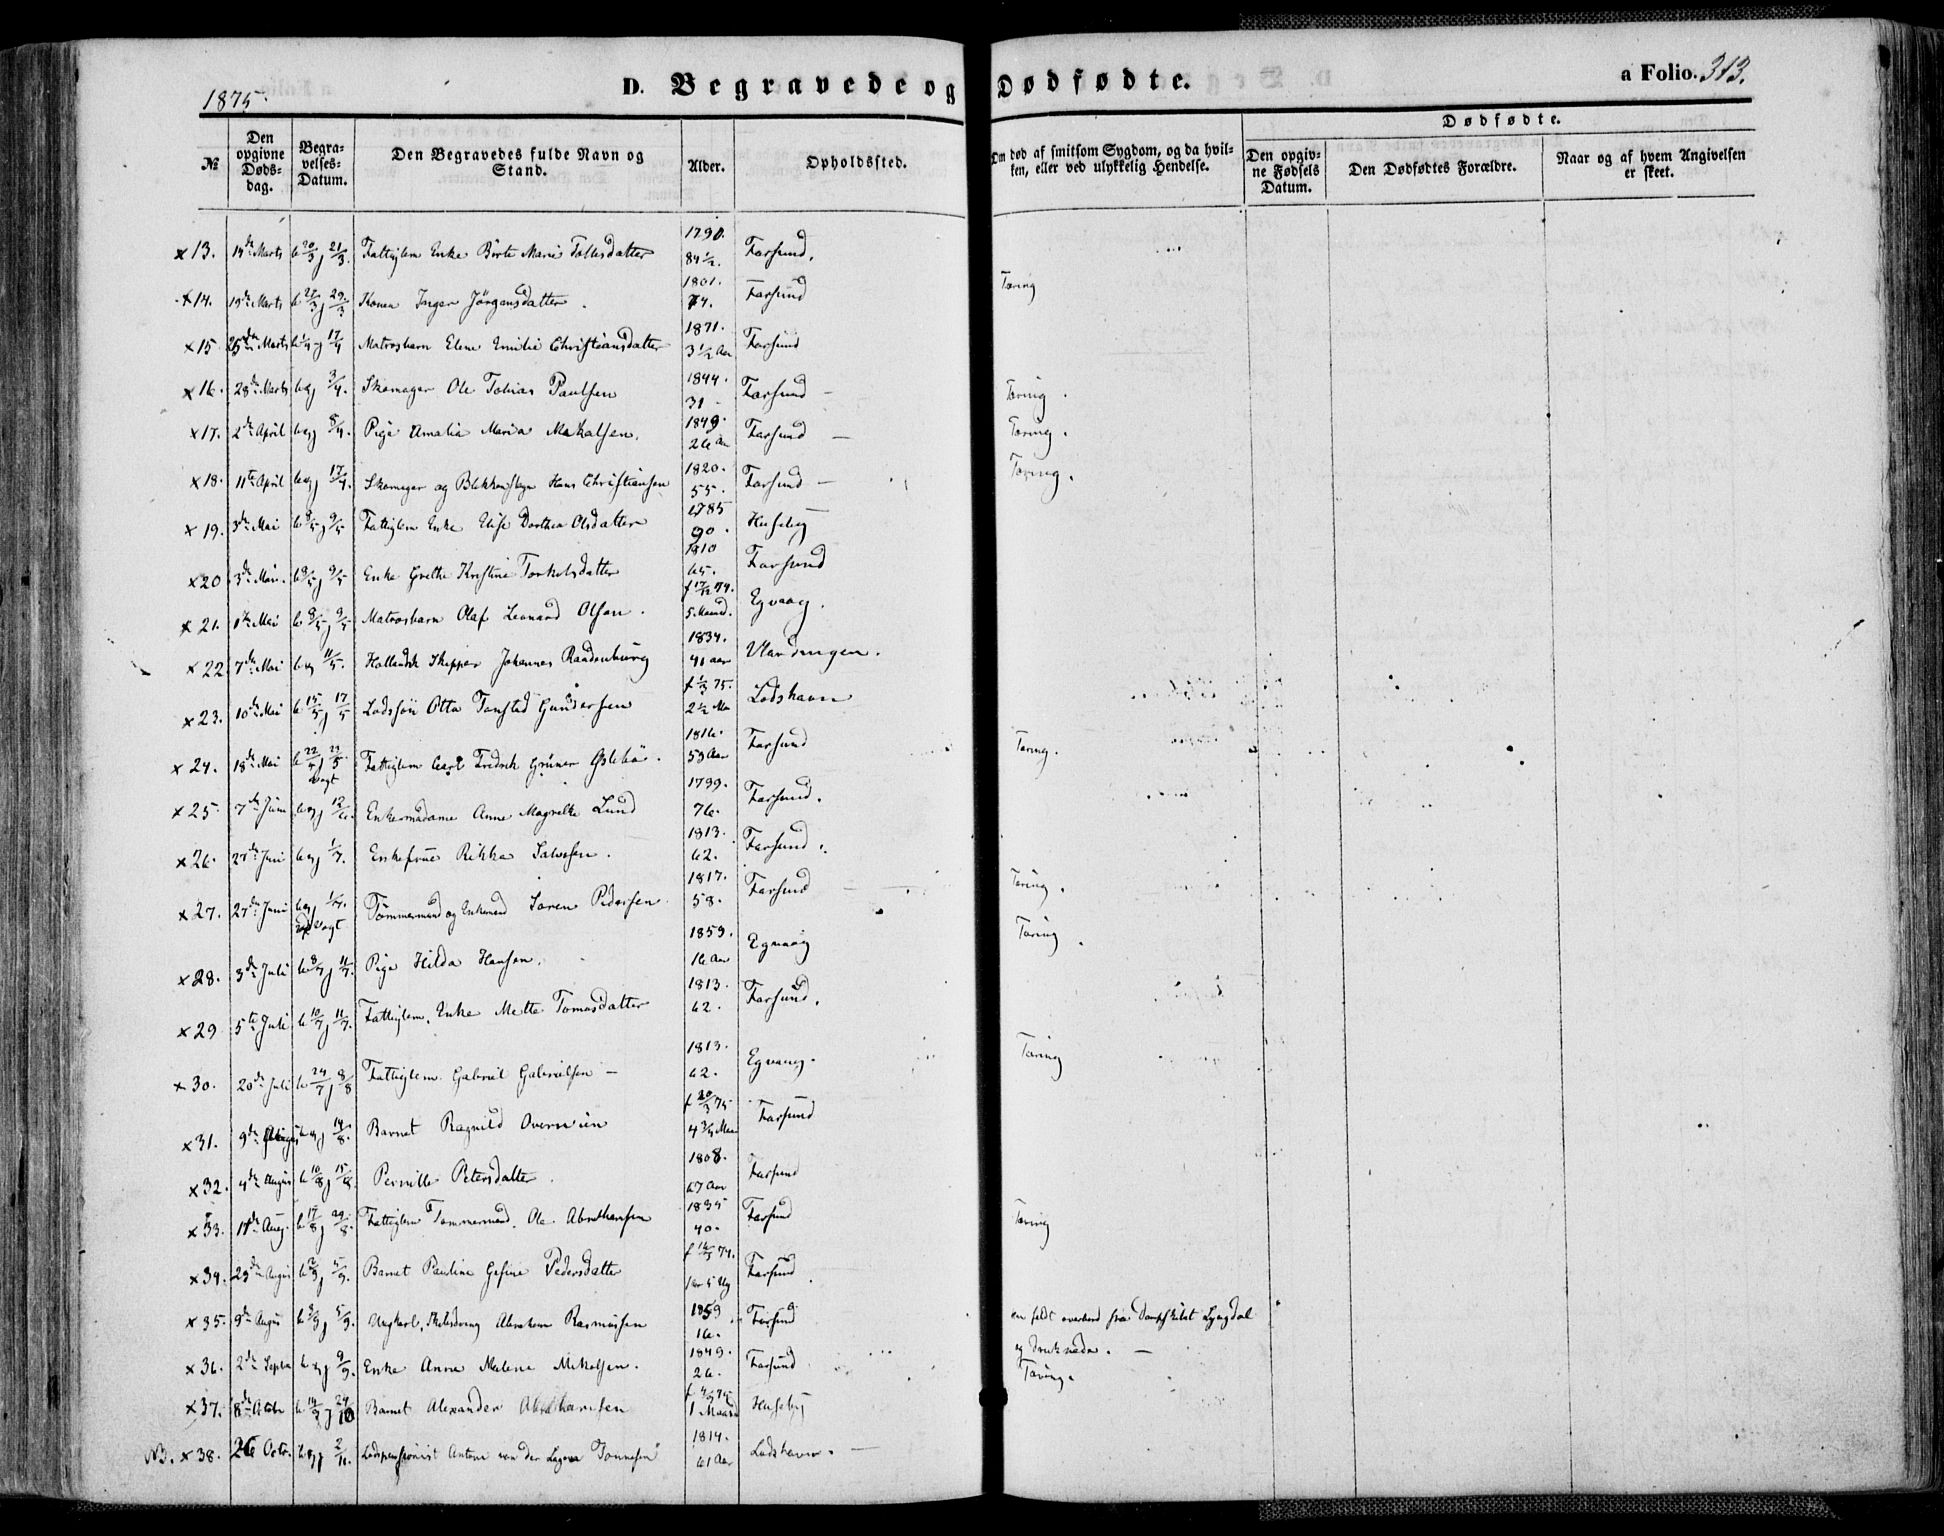 1875.
D. Begravede og Dødfødte.
a Folio. 313.
№ | Den opgivne Døds-dag. | Begra-velses-Datum. | Den Begravedes fulde Navn og Stand. | Alder. | Opholdssted. | Om død af smitsom Sygdom, og da hvil-ken, eller ved ulykkelig Hendelse. | Dødfødte. | Den opgiv-ne Fødsels Datum. | Den Dødfødtes Forældre. | Naar og af hvem Angivelsen er skeet.
x 13. 14de Marts b 20/3 j 21/3. Fattiglem Enke Birte Marie Tollesdatter 1790. 84 1/2. Farsund.
x 14. 19de Marts j 29/3 Konen Inger Jörgensdatter. 1801. 74. Farsund Tæring
x 15 25de Marts j 17/4 Matrosbarn Elene Emilie Christiansdatter 1871. 3 1/2 Aar Farsund
x 16. 28de Marts b og j 3/4. Skomager Ole Tobias Paulsen 1844. 31 Farsund Tæring.
x 17. 2den April b og j 8/4. Pige Amalia Maria Mikalsen. 1849. 26 Aar Farsund Tæring.
x 18. 11te April b og j 17/4. Skomager og Hans Christiansen 1820. 55. Farsund Tæring.
x 19. 3de Mai b 9/5 j 9/5 Fattiglem Enke Elise Dorthea Olsdatter 1785 90. Huseby
x 20 3de Mai. b 9/5 j 9/5 Enke Grethe Kristine Torkelsdatter 1810 65. Farsund
x 21. 1ste Mai b 9/5 j 9/5 Matrosbarn Olaf Leonard Olsen. f 17/12 74. 5 Maand. Egvaag.
x 22 7de Mai b og j 11/5. Hollandsk Skipper Johannes Raadenburg 1834. 41 aar Vlardingen.
x 23. 10de Mai b 15/5 j 17/5 Lodssön Otto Tonsted Gundersen f 1/3 75. 2 1/2 Ma Lodshavn
x 24. 18de Mai b 22/5 j 22/5 Fattiglem Carl Fredrik Grüner Östebö. 1816. 59 Aar Farsund Tæring.
x 25. 7de Juni b og j 12/6. Enkemadame Anne Magrethe Lund 1799. 76. Farsund.
x 26. 27de Juni b og j 1/7. Enkefrue Rikke Salvesen. 1813. 62. Farsund.
x 27. 27de Juni b og j 1/7. Tömmermand og Enkemand Sören Pedersen 1817. 58. Farsund Tæring.
x 28. 3de Juli b 8/7 j 11/7. Pige Hilda Hansen. 1859. 16 Aar Egvaag Tæring.
x 29 5te Juli b 10/7 j 11/7. Fattiglem. Enke Mette Tomasdatter 1813. 62. Farsund.
x 30. 20de Juli b 24/7 j 8/8 Fattiglem. Gabriel Gabrielsen 1813. 62. Egvaag. Tæring
x 31. 9de August b og j 14/8. Barnet Ragnild f 20/3 75 4 3/4 Maan Farsund
x 32. 4de August b 10/8 j 15/8. Pernille Petersdatter. 1808. 67 Aar Farsund
x 33. Aug. b 17/8 j 29/8. Fattiglem Tömmermand. Ole Abrahamsen 1835 40. Farsund Tæring
x 34. August j 5/9. Barnet Pauline Gesine Pedersdatter 74. Farsund.
x 35. August j 5/9. Ungkarl, Skibsdreng Abraham Rasmussen 1859 16. Farsund en faldt overbord fra Dampskibet Lyngdal
og druknede.
x 36. 2den Septbr b og j 9/9. Enke Anne Malene Mikalsen. 1849. 26. Farsund Tæring.
x 37. 8de j 24/10 Barnet Alexander Abrahamsen 1 Maaned Huseby
NB. x 38. 26 Octr. b og j 2/11. Lodspensionist Antone van der Lagen Tönnesen 1814. 61 Aar Lodshavn.